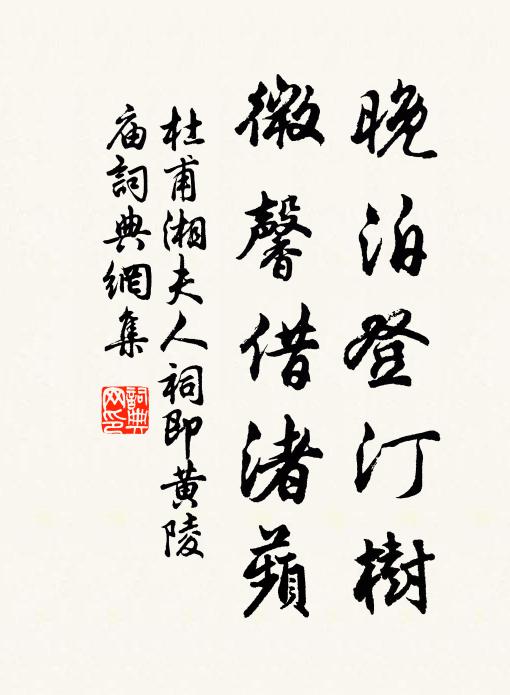 晚泊登汀樹
微馨借渚蘋
杜甫湘夫人祠即黄陵
庙詞典網集
詞典
网印